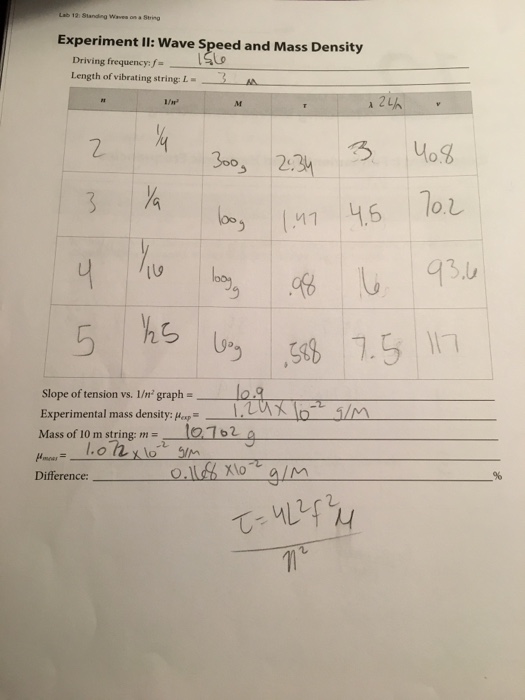 Lab 12: Standing Waves on a String
Experiment II: Wave Speed and Mass Density
Driving frequency: f =
Length of vibrating string: L = 3 M
n 1/n² M T λ 2L/n v
2 1/4 300g 2.34 3 40.8
3 1/9 1.47 4.5 70.2
4 1/16 100g .98 6 93.6
5 1/25 60g .588 7.5 117
Slope of tension vs. 1/n² graph = 10.9
Experimental mass density: μexp = 1.24 x 10⁻² g/M
Mass of 10 m string: m = 10.762 g
μmeas = 1.072 x 10⁻² g/m
Difference: 0.1168 x10⁻² g/M %
τ = 4L²f²μ
n²